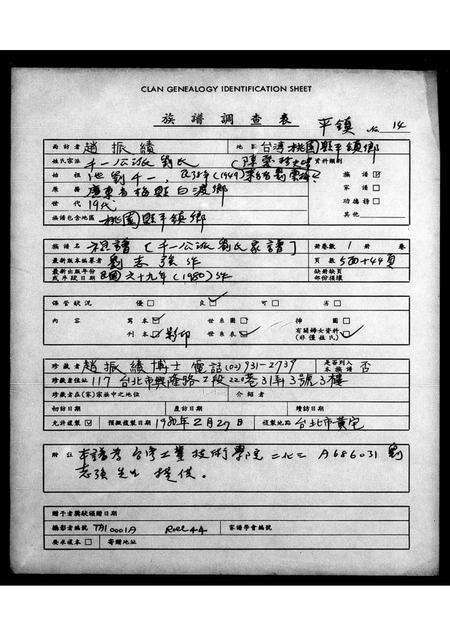 CLAN GENEALOGY IDENTIFICATION SHEET
族譜調查表 平鎮 No 14
面訪者 趙振績 地名 台灣桃園縣平鎮鄉
姓氏宗派 千一公派劉氏 資料類別
始祖 劉千一 族譜
原籍 廣東省梅縣白渡鄉 家譜
世代 19代 功德榜
族譜包含地區 桃園縣平鎮鄉 其他
族譜名 祖譜 (千一公派劉氏家譜) 卷數 1 冊 卷
最新版本編纂者 劉志強 頁數 500+44頁
最新出版年份或手鈔日期 民國六十九年(1980) 缺新缺頁部份損壞
保管狀況 優 良 可 劣
內容 寫本 世系圖 插圖
刊本 影印 世系表 有關婦女資料(非僅姓氏)
珍藏者 趙振績博士 電話(02)931-2739 是否列入本族譜 否
珍藏者住址 117 台北市興隆路2段220巷31弄3號3樓
珍藏者在(家)宗族中之地位 介紹者
初訪日期 度訪日期 續訪日期
允許複製 預擬複製日期 1980年2月27日 複製地點 台北市黃宅
附註 本譜為台灣工業技術學院二化三 A686031 劉
志強先生提供。
贈予者獎狀頒贈日期
攝影者編號 TAI 0001A Roll 44 家譜學會編號
要求複本 寄贈地址